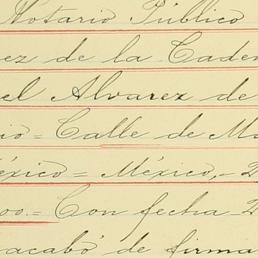 Notario Público
ez de la Caden
el Alvarez de
io = Calle de M
éxico = México, - 2
oo = Con fecha 2
acabó de firma